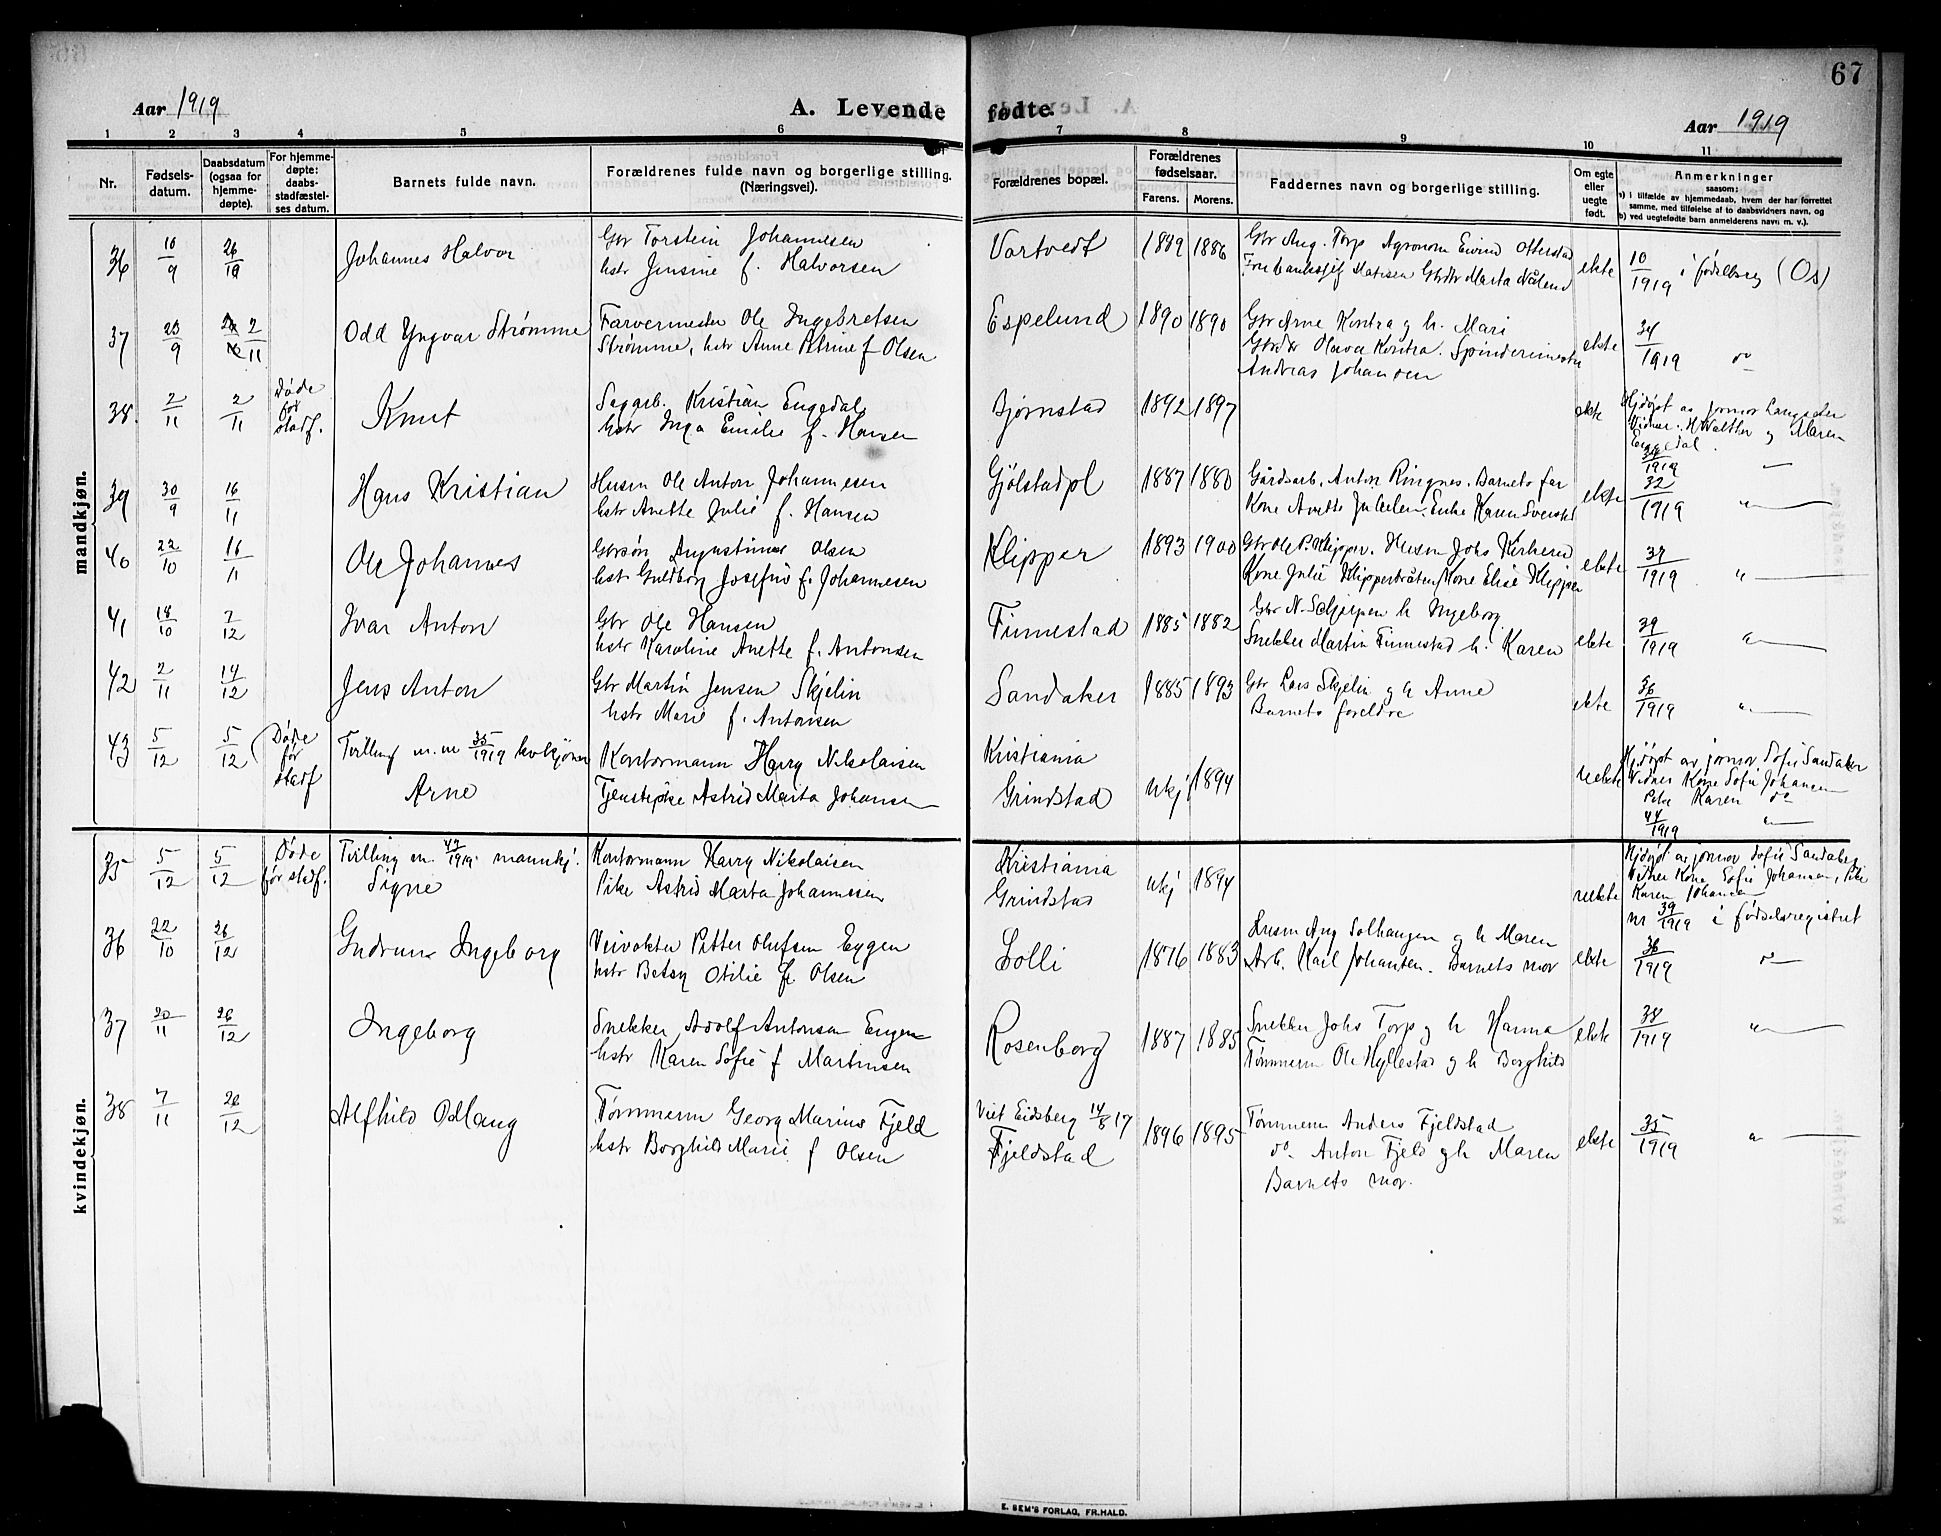 67
Aar 1919
A. Levende fødte.
Aar 1919
1 2 3 4 5 6 7 8 9 10 11
Nr.
Fødsels-
datum.
Daabsdatum
(ogsaa for
hjemme-
døpte).
For hjemme-
døpte:
daabs-
stadfæstel-
ses datum.
Barnets fulde navn.
Forældrenes fulde navn og borgerlige stilling.
(Næringsvei).
Forældrenes bopæl.
Forældrenes
fødselsaar.
Farens. Morens.
Faddernes navn og borgerlige stilling.
Om egte
eller
uegte
født.
Anmerkninger
saasom:
a) i tilfælde av hjemmedaab, hvem der har forrettet
samme, med tilføielse af to daabsvidners navn, og
b) ved uegtefødte barn anmelderens navn m. v.).
mandkjøn.
36 10/9 26/10 Johannes Halvor
Gbr Torstein Johannesen
hstr Jensine f. Halvorsen
Vartvedt 1889 1886
Gbr Aug. Torp Agronom Eivind Otterstad
ekte 10/1919 i fødselsreg (Os)
37 23/9 2/11 Odd Yngvar Strømme
Farvermester Ole Ingebretsen
Strømme, hstr Anne Petrine f Olsen
Espelund 1890 1890
Gbr Arne Kontra g h. Mari
Gbrdtr Olava Kontra. Spinderimester
Andreas Johansen
ekte 34/1919 do
38. 2/11 2/11 Døde
før
stadf.
Knut
Sagarb. Kristian Engedal
hstr Inga Emilie f. Hansen
Bjørnstad 1892 1897
ekte
Hjdøpt av jormor Langseter
Vidner. H Walther og Maren
Engedal.
1919
39 30/9 16/11 Hans Kristian
Husm Ole Anton Johannesen
hstr Anette Julie f. Hansen
Gjølstadpl 1887 1880
Gårdsarb. Anton Ringnes. Barnets far
Kone Anette Enke Karen
ekte 32/1919 "
40 22/10 16/11 Ole Johannes
Gbrsøn Augustinus Olsen
hstr Guldborg Josefine f. Johannesen
Klipper 1893 1900
Gbr Ole P. Klipper. Husm Johs Kirkerud
Kone Julie Klipperbråten, Kone Elise Klipper
ekte 37/1919 "
41 18/10 7/12 Ivar Anton
Gbr Ole Hansen
hstr Karoline Anette f. Antonsen
Finnestad 1885 1882
Gbr N. Schjerpen h Ingeborg
Snekker Martin Finnestad h. Karen
ekte 39/1919 "
42 2/11 14/12 Jens Anton
Gbr Martin Jensen Skjelin
hstr Marie f. Antonsen
Sandaker 1885 1893
Gbr Lars Skjelin g h Anne
Barnets foreldre
ekte 36/1919 "
43 5/12 5/12 Døde
før
stadf
Tvilling m. nr 35/1919 kvkjøn
Arne
Kontormann Harry Nikolaisen
Tjenstepike Astrid Marta Johansen
Kristiania
Grindstad ukj 1894
uekte
Hjdøpt av jormor Sofie Sandaker
Vidner Kone Sofie Johansen
Pike Karen do
44/1919 "
kvindekjøn.
35 5/12 5/12 Døde
før stadf.
Tvilling m. 43/1919 mannkj.
Signe
Kontormann Harry Nikolaisen
Pike Astrid Marta Johannesen
Kristiania
Grindstad ukj 1894
uekte
Hjdøpt av jormor Sofie Sandaker
Vidner Kone Sofie Johansen, Pike
Karen Johansen
nr 39/1919 i fødselsregistret
36 22/10 26/12 Gudrun Ingeborg
Veivokter Petter Olufsen Eygen
hstr Betsy Otilie f. Olsen
Lolli 1876 1883
Husm Aug Solhaugen g h Maren
Arb. Karl Johansen. Barnets mor
ekte 36/1919 do
37 20/11 26/12 Ingeborg
Snekker Adolf Antonsen Eugen
hstr Karen Sofie f Martinsen
Rosenborg 1887 1885
Snekker Johs Torp g h Hanna
Tømmerm Ole Hyllestad g h Borghild
ekte 38/1919 "
38 7/11 26/12 Alfhild Odlaug
Tømmerm Georg Marius Fjeld
hstr Borghild Marie f Olsen
Viet Eidsberg 14/8 17
Fjeldstad 1896 1895
Tømmerm Anders Fjeldstad
do Anton Fjeld g h Maren
Barnets mor.
ekte 35/1919 "
E. SEM'S FORLAG, FR.HALD.